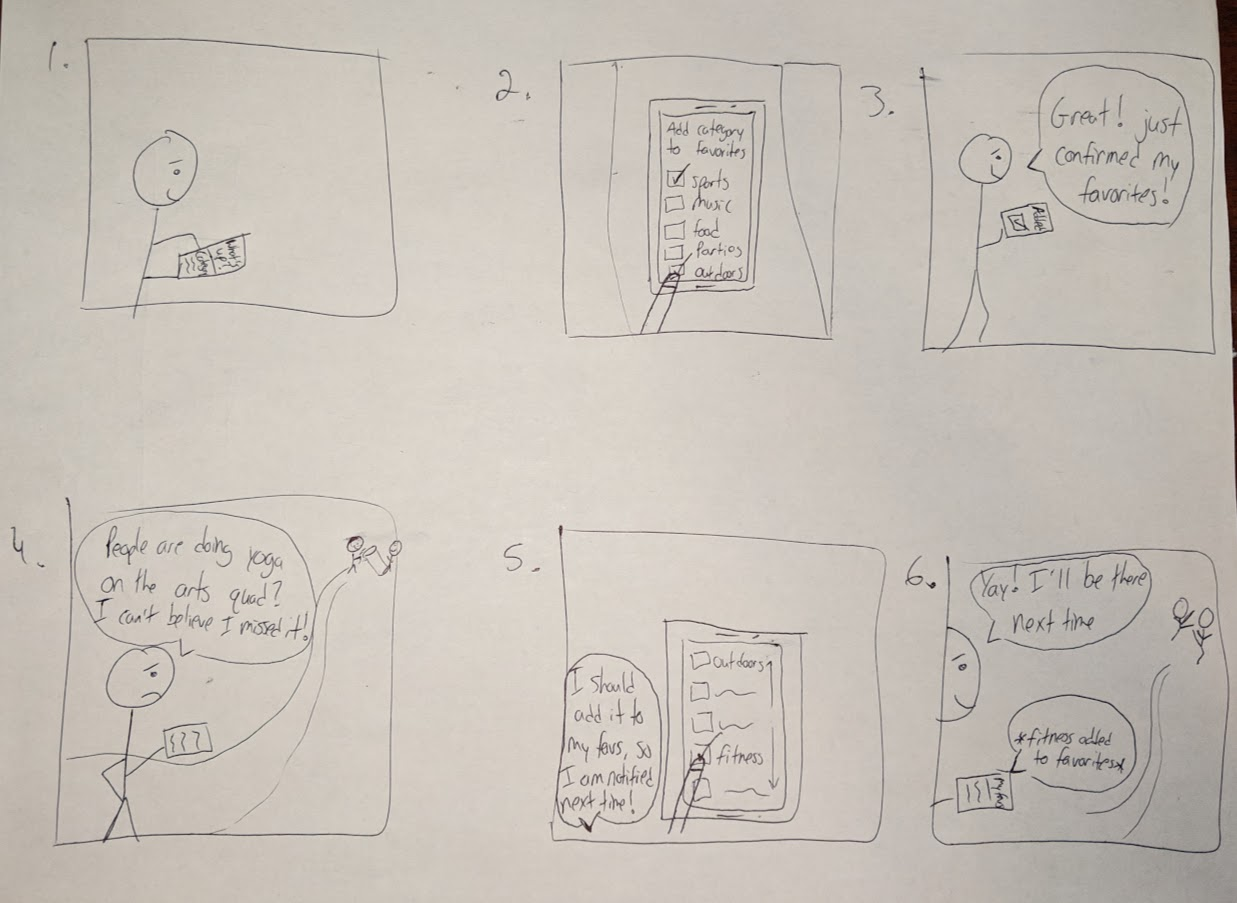 1.
What's
up?
2.
Add category
to favorites
sports
music
food
Parties
outdoors
3.
Great! just
confirmed my
favorites!
Added
4.
People are doing yoga
on the arts quad?
I can't believe I missed it!
5.
I should
add it to
my favs, so
I am notified
next time!
outdoors
fitness
6.
Yay! I'll be there
next time
*fitness added
to favorites*
My favs